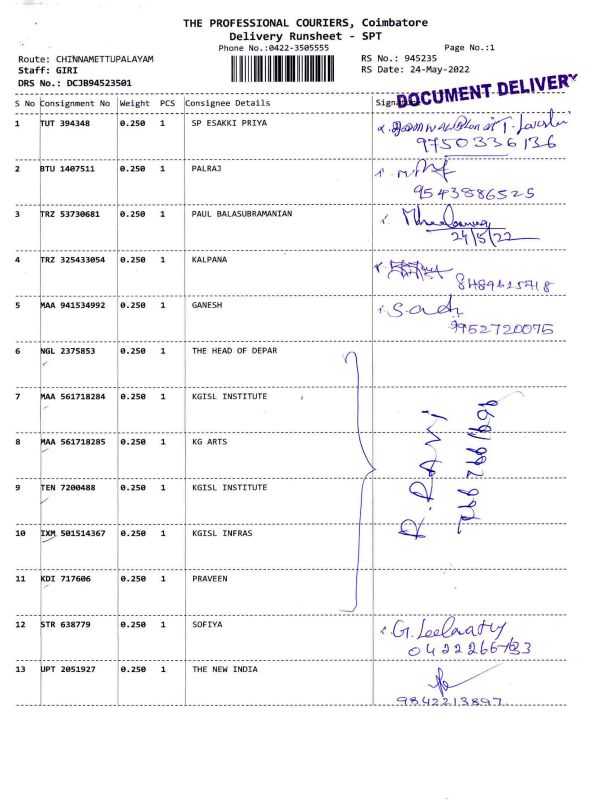 THE PROFESSIONAL COURIERS, Coimbatore
Delivery Runsheet - SPT
Phone No.:0422-3505555
Page No.:1
Route: CHINNAMETTUPALAYAM
RS No.: 945235
Staff: GIRI
RS Date: 24-May-2022
DRS No.: DCJB94523501
DOCUMENT DELIVERY
S No Consignment No Weight PCS Consignee Details
1 TUT 394348 0.250 1 SP ESAKKI PRIYA
9750336136
2 BTU 1407511 0.250 1 PALRAJ
9543886525
3 TRZ 53730681 0.250 1 PAUL BALASUBRAMANIAN
24/5/22
4 TRZ 325433054 0.250 1 KALPANA
5 MAA 941534992 0.250 1 GANESH
9952720075
6 NGL 2375853 0.250 1 THE HEAD OF DEPAR
7 MAA 561718284 0.250 1 KGISL INSTITUTE
8 MAA 561718285 0.250 1 KG ARTS
R. RAVI
9 TEN 7200488 0.250 1 KGISL INSTITUTE
10 IXM 501514367 0.250 1 KGISL INFRAS
11 KDI 717606 0.250 1 PRAVEEN
12 STR 638779 0.250 1 SOFIYA
13 UPT 2051927 0.250 1 THE NEW INDIA
9842213897